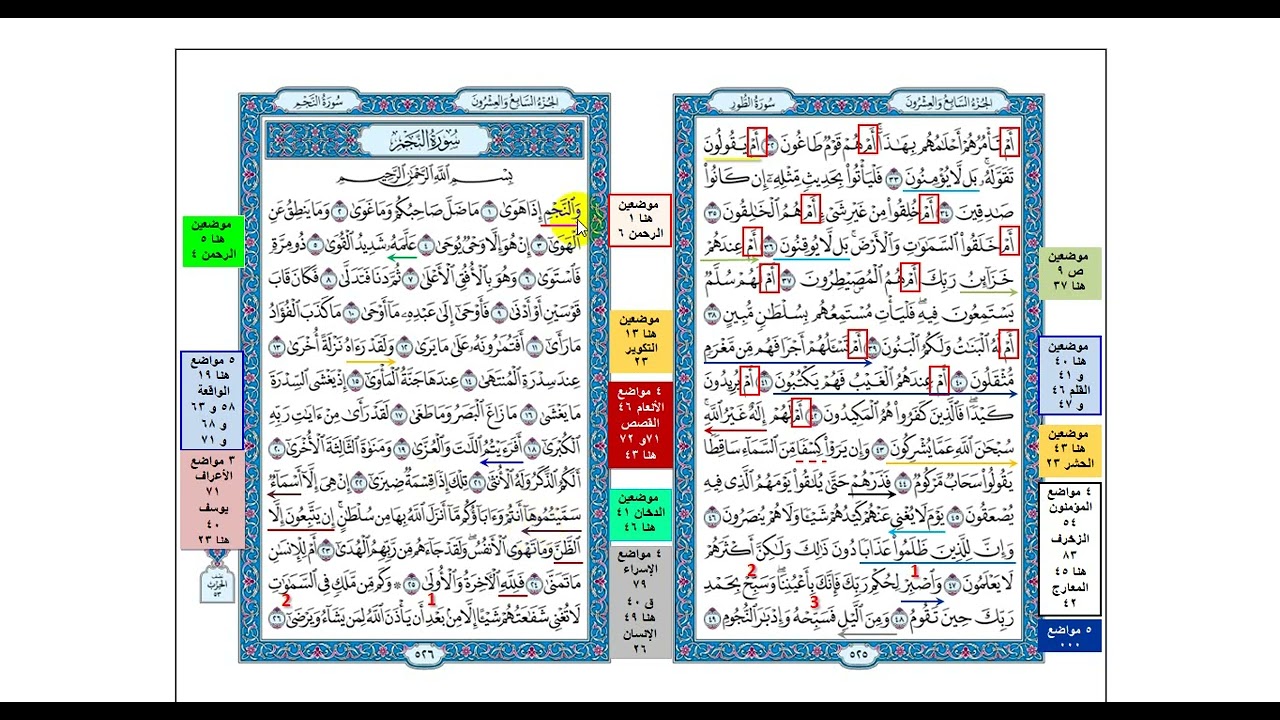 الجزء السابع والعشرون
سورة الطور
أَمْ تَأْمُرُهُمْ أَحْلَامُهُم بِهَٰذَا ۚ أَمْ هُمْ قَوْمٌ طَاغُونَ ٣٢ أَمْ يَقُولُونَ
تَقَوَّلَهُ ۚ بَل لَّا يُؤْمِنُونَ ٣٣ فَلْيَأْتُوا بِحَدِيثٍ مِّثْلِهِ إِن كَانُوا
صَادِقِينَ ٣٤ أَمْ خُلِقُوا مِنْ غَيْرِ شَيْءٍ أَمْ هُمُ الْخَالِقُونَ ٣٥
أَمْ خَلَقُوا السَّمَاوَاتِ وَالْأَرْضَ ۚ بَل لَّا يُوقِنُونَ ٣٦ أَمْ عِندَهُمْ
خَزَائِنُ رَبِّكَ أَمْ هُمُ الْمُصَيْطِرُونَ ٣٧ أَمْ لَهُمْ سُلَّمٌ
يَسْتَمِعُونَ فِيهِ ۖ فَلْيَأْتِ مُسْتَمِعُهُم بِسُلْطَانٍ مُّبِينٍ ٣٨
أَمْ لَهُ الْبَنَاتُ وَلَكُمُ الْبَنُونَ ٣٩ أَمْ تَسْأَلُهُمْ أَجْرًا فَهُم مِّن مَّغْرَمٍ
مُّثْقَلُونَ ٤٠ أَمْ عِندَهُمُ الْغَيْبُ فَهُمْ يَكْتُبُونَ ٤١ أَمْ يُرِيدُونَ
كَيْدًا ۖ فَالَّذِينَ كَفَرُوا هُمُ الْمَكِيدُونَ ٤٢ أَمْ لَهُمْ إِلَٰهٌ غَيْرُ اللَّهِ ۚ
سُبْحَانَ اللَّهِ عَمَّا يُشْرِكُونَ ٤٣ وَإِن يَرَوْا كِسْفًا مِّنَ السَّمَاءِ سَاقِطًا
يَقُولُوا سَحَابٌ مَّرْكُومٌ ٤٤ فَذَرْهُمْ حَتَّىٰ يُلَاقُوا يَوْمَهُمُ الَّذِي فِيهِ
يُصْعَقُونَ ٤٥ يَوْمَ لَا يُغْنِي عَنْهُمْ كَيْدُهُمْ شَيْئًا وَلَا هُمْ يُنصَرُونَ ٤٦
وَإِنَّ لِلَّذِينَ ظَلَمُوا عَذَابًا دُونَ ذَٰلِكَ وَلَٰكِنَّ أَكْثَرَهُمْ
لَا يَعْلَمُونَ ٤٧ وَاصْبِرْ لِحُكْمِ رَبِّكَ فَإِنَّكَ بِأَعْيُنِنَا ۖ وَسَبِّحْ بِحَمْدِ
1
2
رَبِّكَ حِينَ تَقُومُ ٤٨ وَمِنَ اللَّيْلِ فَسَبِّحْهُ وَإِدْبَارَ النُّجُومِ ٤٩
3
٥٢٥
موضعين
ص ٩
هنا ٣٧
موضعين
هنا ٤٠
و ٤١
القلم ٤٦
و ٤٧
موضعين
هنا ٤٣
الحشر ٢٣
٤ مواضع
المؤمنون
٥٤
الزخرف
٨٣
هنا ٤٥
المعارج
٤٢
٥ مواضع
...
موضعين
هنا ١
الرحمن ٦
موضعين
هنا ١٣
التكوير
٢٣
٤ مواضع
الأنعام ٤٦
القصص
٧١و ٧٢
هنا ٤٣
موضعين
الدخان ٤١
هنا ٤٦
٤ مواضع
الإسراء
٧٩
ق ٤٠
هنا ٤٩
الإنسان
٢٦
الجزء السابع والعشرون
سورة النجم
سورة النجم
بِسْمِ اللَّهِ الرَّحْمَٰنِ الرَّحِيمِ
وَالنَّجْمِ إِذَا هَوَىٰ ١ مَا ضَلَّ صَاحِبُكُمْ وَمَا غَوَىٰ ٢ وَمَا يَنطِقُ عَنِ
الْهَوَىٰ ٣ إِنْ هُوَ إِلَّا وَحْيٌ يُوحَىٰ ٤ عَلَّمَهُ شَدِيدُ الْقُوَىٰ ٥ ذُو مِرَّةٍ
فَاسْتَوَىٰ ٦ وَهُوَ بِالْأُفُقِ الْأَعْلَىٰ ٧ ثُمَّ دَنَا فَتَدَلَّىٰ ٨ فَكَانَ قَابَ
قَوْسَيْنِ أَوْ أَدْنَىٰ ٩ فَأَوْحَىٰ إِلَىٰ عَبْدِهِ مَا أَوْحَىٰ ١٠ مَا كَذَبَ الْفُؤَادُ
مَا رَأَىٰ ١١ أَفَتُمَارُونَهُ عَلَىٰ مَا يَرَىٰ ١٢ وَلَقَدْ رَآهُ نَزْلَةً أُخْرَىٰ ١٣
عِندَ سِدْرَةِ الْمُنتَهَىٰ ١٤ عِندَهَا جَنَّةُ الْمَأْوَىٰ ١٥ إِذْ يَغْشَى السِّدْرَةَ
مَا يَغْشَىٰ ١٦ مَا زَاغَ الْبَصَرُ وَمَا طَغَىٰ ١٧ لَقَدْ رَأَىٰ مِنْ آيَاتِ رَبِّهِ
الْكُبْرَىٰ ١٨ أَفَرَأَيْتُمُ اللَّاتَ وَالْعُزَّىٰ ١٩ وَمَنَاةَ الثَّالِثَةَ الْأُخْرَىٰ ٢٠
أَلَكُمُ الذَّكَرُ وَلَهُ الْأُنثَىٰ ٢١ تِلْكَ إِذًا قِسْمَةٌ ضِيزَىٰ ٢٢ إِنْ هِيَ إِلَّا أَسْمَاءٌ
سَمَّيْتُمُوهَا أَنتُمْ وَآبَاؤُكُم مَّا أَنزَلَ اللَّهُ بِهَا مِن سُلْطَانٍ ۚ إِن يَتَّبِعُونَ إِلَّا
الظَّنَّ وَمَا تَهْوَى الْأَنفُسُ ۖ وَلَقَدْ جَاءَهُم مِّن رَّبِّهِمُ الْهُدَىٰ ٢٣ أَمْ لِلْإِنسَانِ
مَا تَمَنَّىٰ ٢٤ فَلِلَّهِ الْآخِرَةُ وَالْأُولَىٰ ٢٥ ۞ وَكَم مِّن مَّلَكٍ فِي السَّمَاوَاتِ
1
2
لَا تُغْنِي شَفَاعَتُهُمْ شَيْئًا إِلَّا مِن بَعْدِ أَن يَأْذَنَ اللَّهُ لِمَن يَشَاءُ وَيَرْضَىٰ ٢٦
٥٢٦
موضعين
هنا ٥
الرحمن ٤
٥ مواضع
هنا ١٩
الواقعة
٥٨ و ٦٣
و ٦٨
و ٧١
٣ مواضع
الأعراف
٧١
يوسف
٤٠
هنا ٢٣
الحزب
٥٣